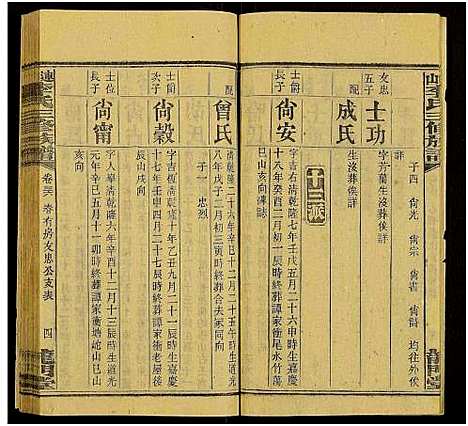 子四 尚光 尚宗 尚書 尚謌 均往外俟
詳
友忠
五子
士功
字芳蘭生沒葬俟詳
配
成氏
生沒葬俟詳
十三派
士爵
長子
尚安
字吉右清乾隆七年壬戌五月二十六申時生嘉慶
十八年癸酉二月二十時終葬譚家衝尾水竹蕩
巳山亥向
配
曾氏
清乾隆二十一年十二月二十五午時生道光
八年戌子二月初三寅時歿葬合夫冢同向
子一 忠烈
士爵
次子
尚穀
字吉恆清乾隆十年乙丑九月二十一辰時生嘉慶
十七年壬申四月二十七辰時終葬譚家衝老屋後
辰山戌向
士位
長子
尚甯
字人舉清乾隆二十六年辛巳十二月十三辰時生道光
元年辛巳五月十一卯時終葬譚家衝塘嵅山巳山
亥向
連山李氏三修族譜
卷三 春有房友忠公支表
四
龍門堂